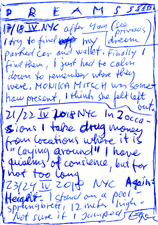 DREAMS 5560
17/18 IV NYC after 4am (see previous)
I try to find my dream
parked car and wallet. Finally
find them, I just had to calm
down to remember where they
were. MONIKA MITSCH was some
how present, I think she felt left
out.
21/22 IV 2018 NYC In 2 occa-
sions I take drug money
from locations where it is
"laying around". I have
qualms of conscience, but for
not too long
23/24 IV 2018 NYC Again:
Height. Stand on a pool
springboard, 12 meter high.
Not sure if I jumped